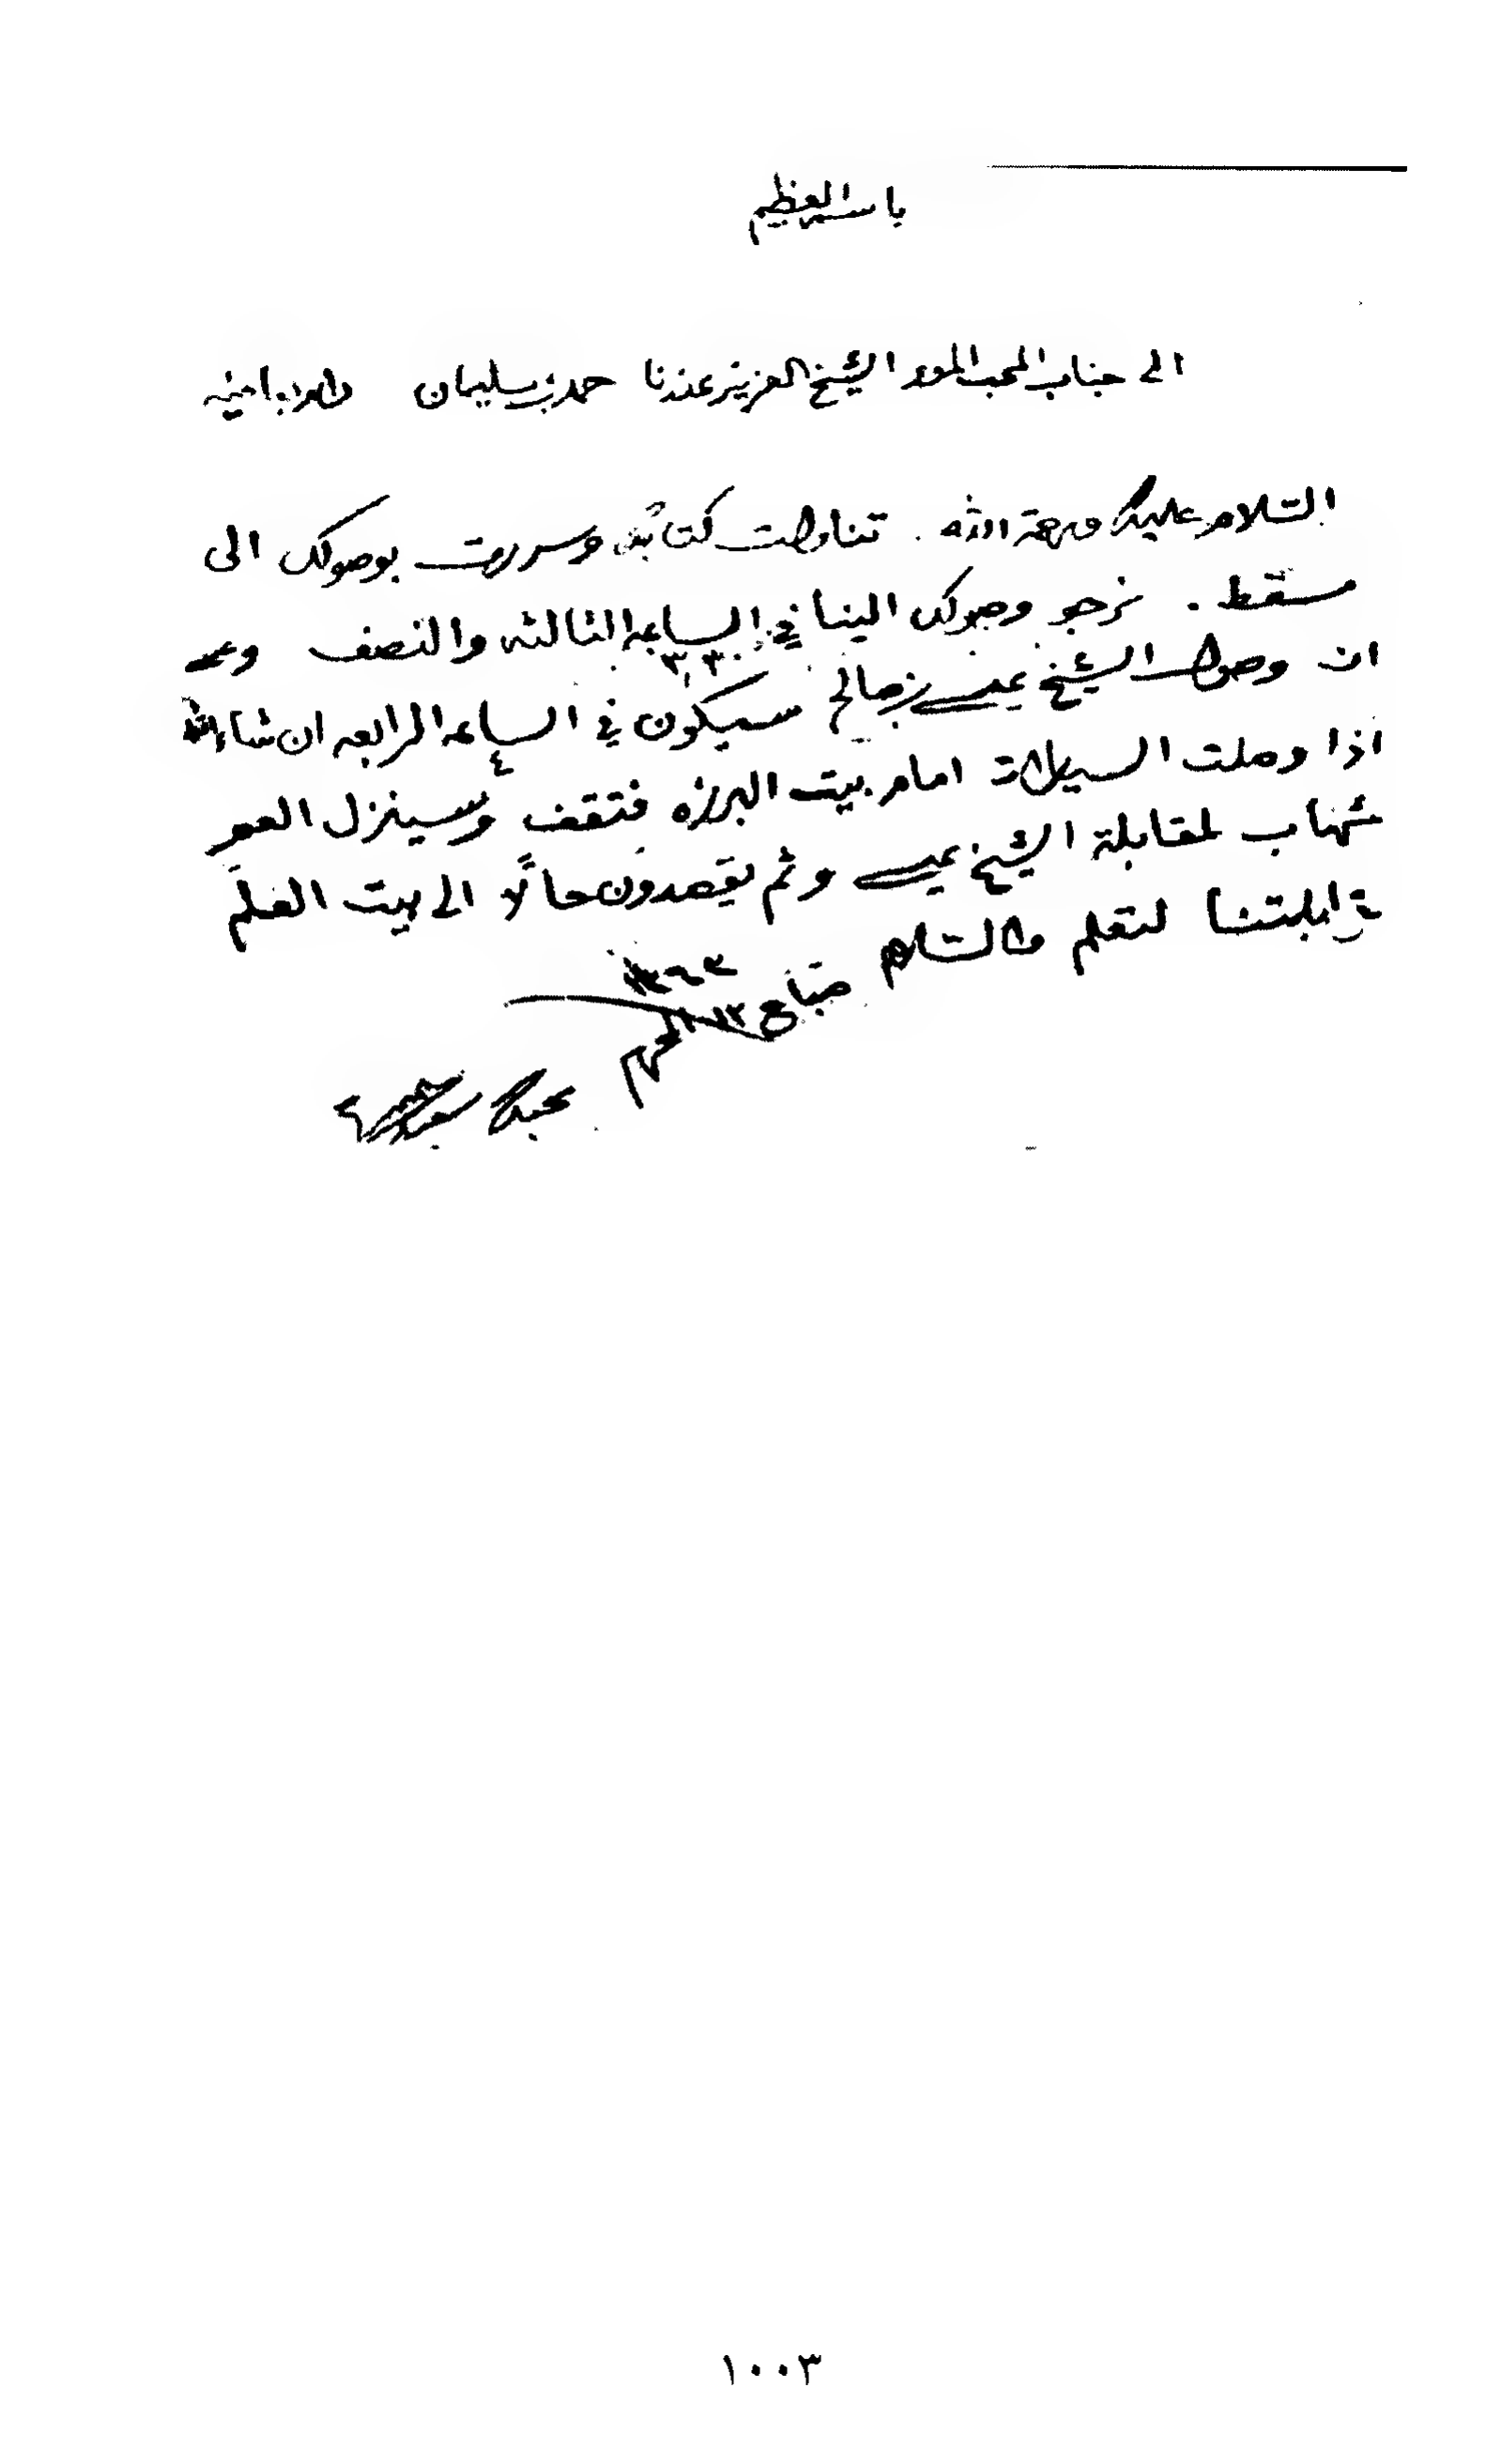 باسمه العظيم
الى جناب المحب المود الشيخ العزيز عندنا حمد بن سليمان
السلام عليك ورحمة الله . تناولت كتابك وسررت بوصولك الى
مسقط . نرجو وصولك الينا في الساعه الثالثه والنصف
٣،٣٠
ان وصول الشيخ عيسى بن صالح سيكون في الساعه الرابعه ان شاء الله
٤
اذا وصلت السيارات امام بيت البرزه فتقف وسينزل العم
شهاب لمقابلة الشيخ عيسى وثم يقصدون حالاً الى بيت العلم
لمقابلتنا لتعلم والسلام صباح ١٣ المحرم
محبك سعيد
١٠٠٣